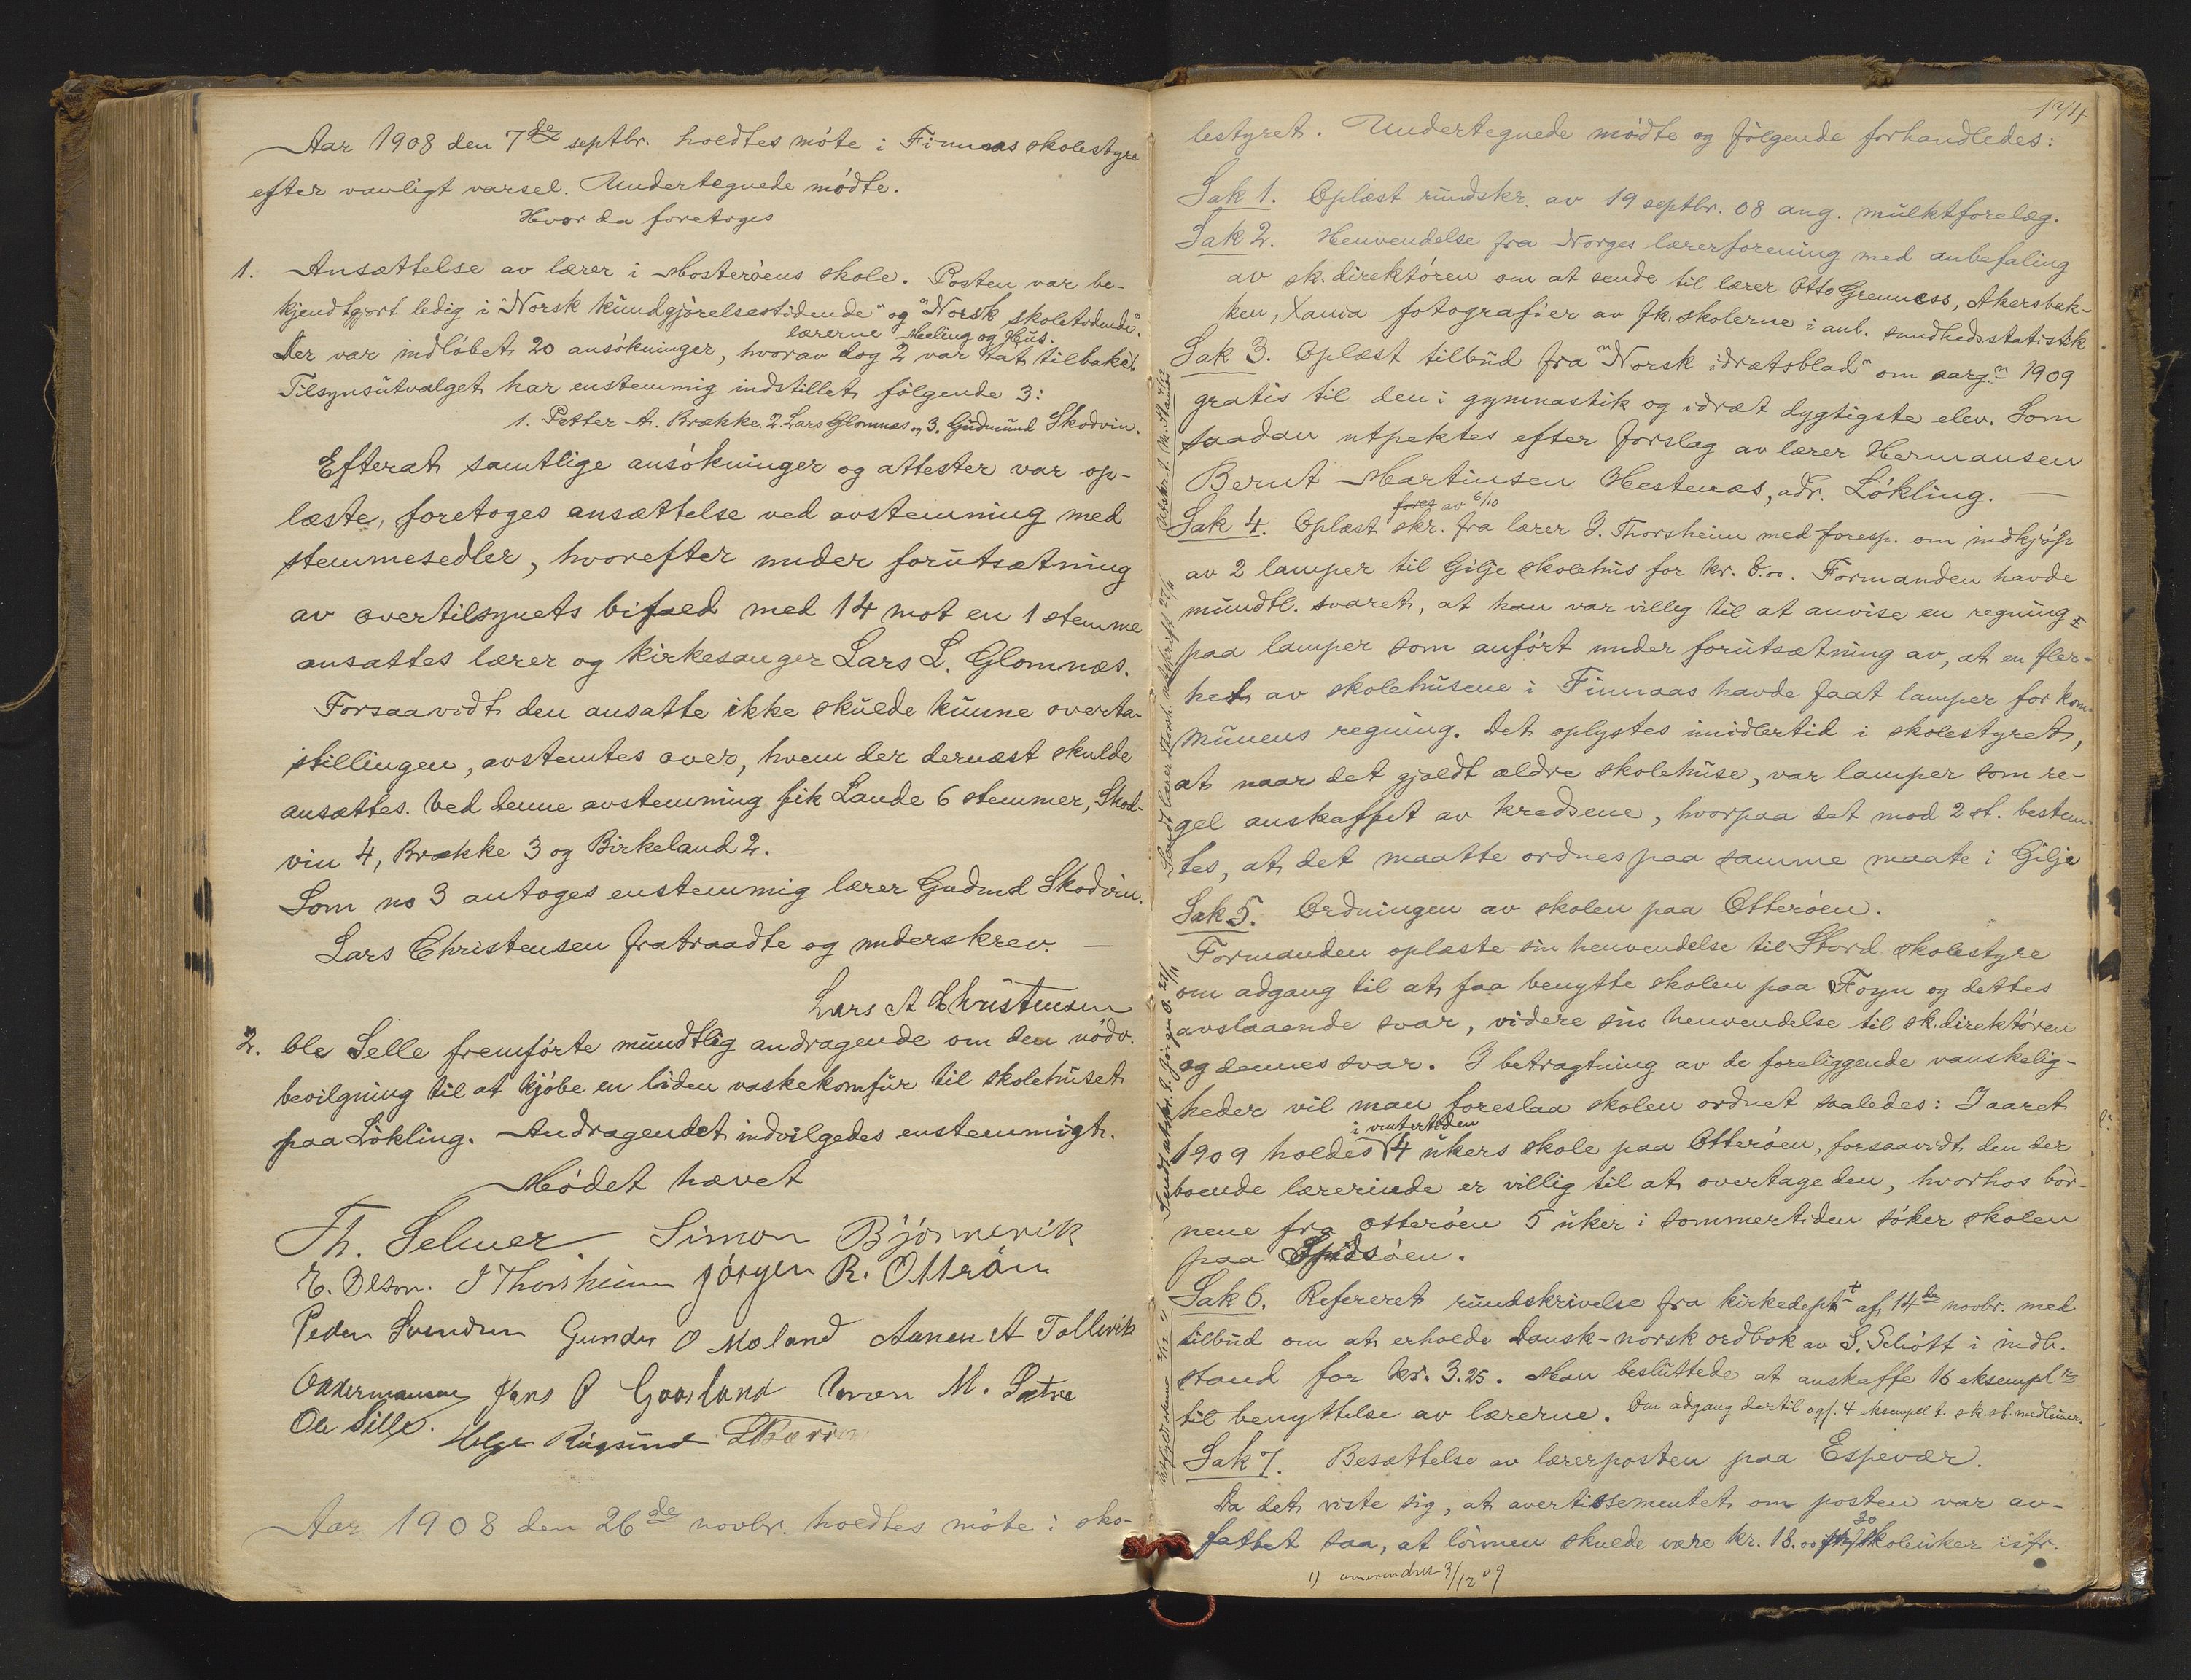 Aar 1908 den 7de septbr. holdtes möte i Finnaas skolestyre
efter vanligt varsel. Undertegnede mödte.
Hvor da foretoges
1. Ansættelse av lærer i Mosteröens skole. Posten var be-
kjendtgjort ledig i "Norsk kundgjörelsestidende" og "Norsk skoletidende".
lærerne Meling og Hus.
Der var indlöbet 20 ansökninger, hvorav dog 2 var tat tilbake.
Tilsynsutvalget har enstemmig indstillet fölgende 3:
1. Petter A. Brække. 2. Lars Glomnæs, 3. Gudmund Skodvin.
Efterat samtlige ansökninger og attester var op-
læste, foretoges ansættelse ved avstemning med
stemmesedler, hvorefter under forutsætning
av overtilsynets bifald med 14 mot en 1 stemme
ansattes lærer og kirkesanger Lars L. Glomnæs.
Forsaavidt den ansatte ikke skulde kunne overta
stillingen, avstemtes over, hvem der dernæst skulde
ansættes. Ved denne avstemning fik Lande 6 stemmer, Skod-
vin 4, Brække 3 og Birkeland 2.
Som no 3 antoges enstemmig lærer Gudmd Skodvin.
Lars Christensen fratraadte og underskrev. —
Lars A Christensen
2. Ole Selle fremförte mundtlig andragende om den nödv.
bevilgning til at kjöbe en liden vaskekomfur til skolehuset
paa Lökling. Andragendet indvilgedes enstemmigt.
Mödet hævet
Th. Selmer Simon Björnevik
E. Olson. J Thorsheim Jörgen R. Otteröen
Peder Svendsen Gunder O Moland Aamen A Tollevik
OHermansen Jens P Gaasland M. Sætre
Ole Selle. Helge Røgsund
Aar 1908 den 26de novbr. holdtes möte i sko-
174
lestyret. Undertegnede mödte og fölgende forhandledes:
Sak 1. Oplæst rundskr. av 19 septbr. 08 ang. mulktforelæg.
Sak 2. Henvendelse fra Norges lærerforening med anbefaling
av sk.direktören om at sende til lærer Otto Grenness, Akersbak-
ken, Xania fotografier av fk.skolerne i anl. sundhedsstatistik
Sak 3. Oplæst tilbud fra "Norsk idrætsblad" om aarg. 1909
gratis til den i gymnastik og idræt dygtigste elev. Som
saadan utpektes efter forslag av lærer Hermansen
Bernt Martinsen Hestenæs, adr. Lökling. —
av 6/10
Sak 4. Oplæst skr. fra lærer J. Thorsheim med foresp. om indkjöp
av 2 lamper til Gilje skolehus for kr. 8.00. Formanden havde
mundtl. svaret, at han var villig til at anvise en regning
paa lamper som anfört under forutsætning av, at en fler-
het av skolehusene i Finnaas havde faat lamper for kom-
munens regning. Det oplystes imidlertid i skolestyret,
at naar det gjaldt ældre skolehuse, var lamper som re-
gel anskaffet av kredsene, hvorpaa det mod 2 st. bestem-
tes, at det maatte ordnes paa samme maate i Gilje
Sak 5. Ordningen av skolen paa Otteröen.
Formanden oplæste sin henvendelse til Stord skolestyre
om adgang til at faa benytte skolen paa Foyn og dettes
avslaaende svar, videre sin henvendelse til sk.direktören
og dennes svar. I betragtning av de foreliggende vanskelig-
heder vil man foreslaa skolen ordnet saaledes: I aaret
i vintertiden
1909 holdes 4 ukers skole paa Otteröen, forsaavidt den der
boende lærerinde er villig til at overtage den, hvorhos bör-
nene fra Otteröen 5 uker i sommertiden söker skolen
paa Spidsöen.
Sak 6. Refereret rundskrivelse fra kirkedept. af 14de novbr. med
tilbud om at erholde Dansk-norsk ordbok av S. Schött i indb.
stand for kr. 3.25. Man besluttede at anskaffe 16 eksempl
til benyttelse av lærerne. Om adgang dertil ogs. 4 eksempl t. sk.st. medlemmer.
Sak 7. Besættelse av lærerposten paa Espevær.
Da det viste sig, at avertissementet om posten var av-
30
fattet saa, at lönnen skulde være kr. 18.00 skoleuker isfr.
1) 3/12 09